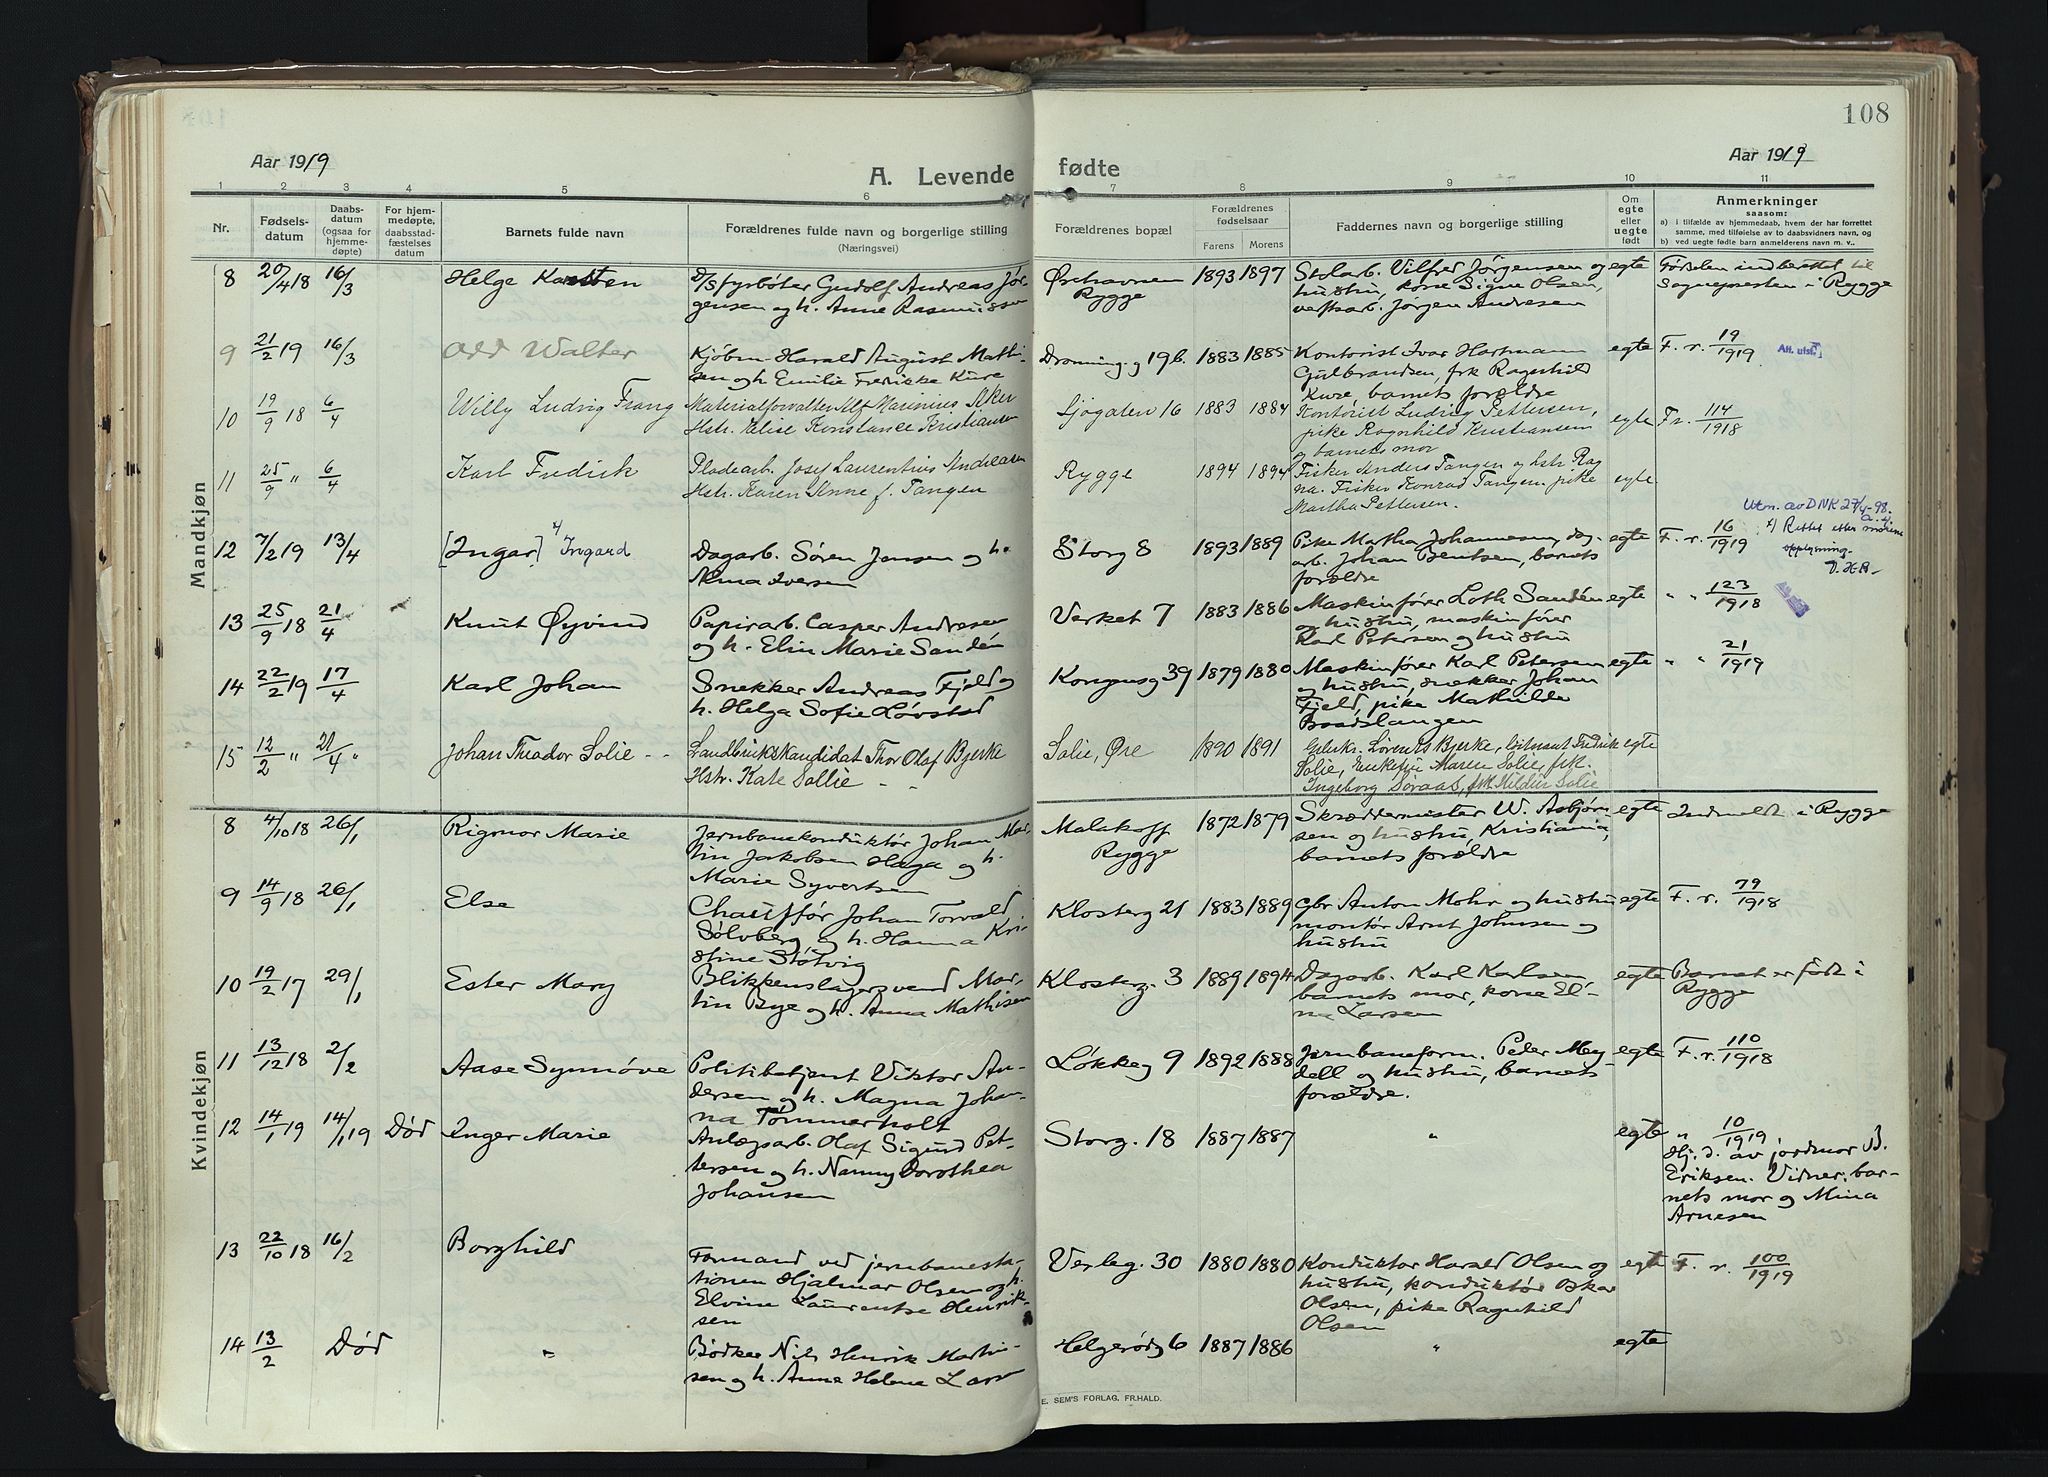 108
Aar 1919
A. Levende fødte
Aar 1919
1 2 3 4 5 6 7 8 9 10 11
Nr.
Fødsels-
datum
Daabs-
datum
(ogsaa for
hjemme-
døpte)
For hjem-
medøpte,
daabsstad-
fæstelses
datum
Barnets fulde navn
Forældrenes fulde navn og borgerlige stilling
(Næringsvei)
Forældrenes bopæl
Forældrenes
fødselsaar
Farens Morens
Faddernes navn og borgerlige stilling
Om
egte
eller
uegte
født
Anmerkninger
saasom:
a) i tilfælde av hjemmedaab, hvem der har forrettet
samme, med tilføielse av to daabsvidners navn, og
b) ved uegte fødte barn anmelderens navn m. v.
Mandkjøn
8 20/4 18 16/3 Helge Karsten
D/S fyrbøter Gudolf Andreas Jør-
gensen og h. Anne Rasmussen
Ørehavnen
Rygge
1893 1897
Stolarb. Vilfred Jørgensen og
hustru, kone Signe Olsen,
verftsarb. Jørgen Andresen
egte
Fødselen indberettet til
sognepresten i Rygge
9 21/2 19 16/3 Odd Walter
Kjøbm. Harald August Mathi-
sen og h. Emilie Fredrikke Kure
Dronning.g 19b. 1883 1885
Kontorist Ivar Hartmann
Gulbrandsen, frk Ragnhild
Kure, barnets forældre
egte F. r. 19/1919 Att. utst.
10 19/9 18 6/4 Willy Ludvig Frang
Materialforvalter Alf Marinius Aker
Hstr. Elise Konstance Kristiansen
Sjøgaten 16 1883 1884
Kontorist Ludvig Pettersen,
pike Ragnhild Kristiansen
og barnets mor
egte Fr. 114/1918
11 25/9 " 6/4 Karl Fredrik
Pladearb. Josef Laurentius Andreasen
Hstr. Karen Anne f. Tangen
Rygge 1894 1894
Fisker Anders Tangen og hstr. Rag
na. Fisker Konrad Tangen, pike
Martha Pettersen.
egte
12 7/2 19 13/4 [Ingar] x) Ingard
Dagarb. Søren Jensen og h.
Alma Iversen
Storg 8 1893 1889
Pike Martha Johannesen, dag-
arb. Johan Bentsen, barnets
forældre
egte F. r. 16/1919
Utm. av DNK 27/4-98.
x) Rettet etter morens
opplysning.
13 25/9 18 21/4 Knut Øyvind
Papirarb. Casper Andresen
og h. Elin Marie Sandén
Verket 7 1883 1886
Maskinfører Loth Sandén
og hustru, maskinfører
Karl Petersen og hustru
egte " " 123/1918
14 22/2 19 17/4 Karl Johan
Snekker Andreas Fjeld og
h. Helga Sofie Løvstad
Kongensg 39 1879 1880
Maskinfører Karl Petersen
og hustru, snekker Johan
Fjeld, pike Mathilde
Baadslangen
egte " " 21/1919
15 12/2 " 21/4 " Johan Theodor Solie - -
Landbrukskandidat Thor Olaf Bjerke
Hstr. Kate Sollie - -
Solie, Øre 1890 1891
Gbrkr. Lorents Bjerke, løitnant Fredrik
Solie, Enkefru Maren Solie, frk.
Ingeborg Soraas, frk Hildur Solie
egte
Kvindekjøn
8 4/10 18 26/1 Rigmor Marie
Jernbanekonduktør Johan Mar-
tin Jakobsen Haga og h.
Marie Syvertsen
Malakoff
Rygge
1872 1879
Skræddermester W. Asbjørn-
sen og hustru, Kristiania,
barnets forældre
egte Indmeldt i Rygge
9 14/9 18 26/1 Else
Chauffør Johan Torvald
Sølvberg og h. Hanna Kri-
stine Støtvig
Klosterg 21 1883 1889
Gbr Anton Mohr og hustru
montør Arnt Johnsen og
hustru
egte F. r. 79/1918
10 19/2 17 29/1 Ester Mary
Blikkenslagersvend Mar-
tin Bye og h. Anna Mathisen
Klosterg. 3 1889 1894
Dagarb. Karl Karlsen
barnets mor, kone El-
na Larsen
egte Barnet er født i
Rygge
11 13/12 18 2/2 Aase Synnøve
Politibetjent Viktor An-
dersen og h. Magna Johan-
na Tømmerholt
Løkkeg 9 1892 1888
Jernbaneform. Peder Mey-
dell og hustru, barnets
forældre.
egte F. r. 110/1918
12 14/1 19 14/1 19 Død Inger Marie
Anlægsarb. Olaf Sigurd Pet-
tersen og h. Nanny Dorothea
Johansen
Storg. 18 1887 1887 " egte " 10/1919
Hj. d. av jordmor B.
Eriksen. Vidner: bar-
nets mor og Mina
Arnesen
13 22/10 18 16/2 Borghild
Formand ved jernbanesta-
tionen Hjalmar Olsen og h.
Elvine Laurentse Henrik-
sen
Verleg. 30 1880 1880
Konduktør Harald Olsen og
hustru, konduktør Oskar
Olsen, pike Ragnhild
Olsen
egte F. r. 100/1919
14 13/2 Død "
Bødker Nils Henrik Marthi-
sen og h. Anne Helene Lars
Helgerødg 6 1887 1886 " egte
E. SEM'S FORLAG, FR.HALD.